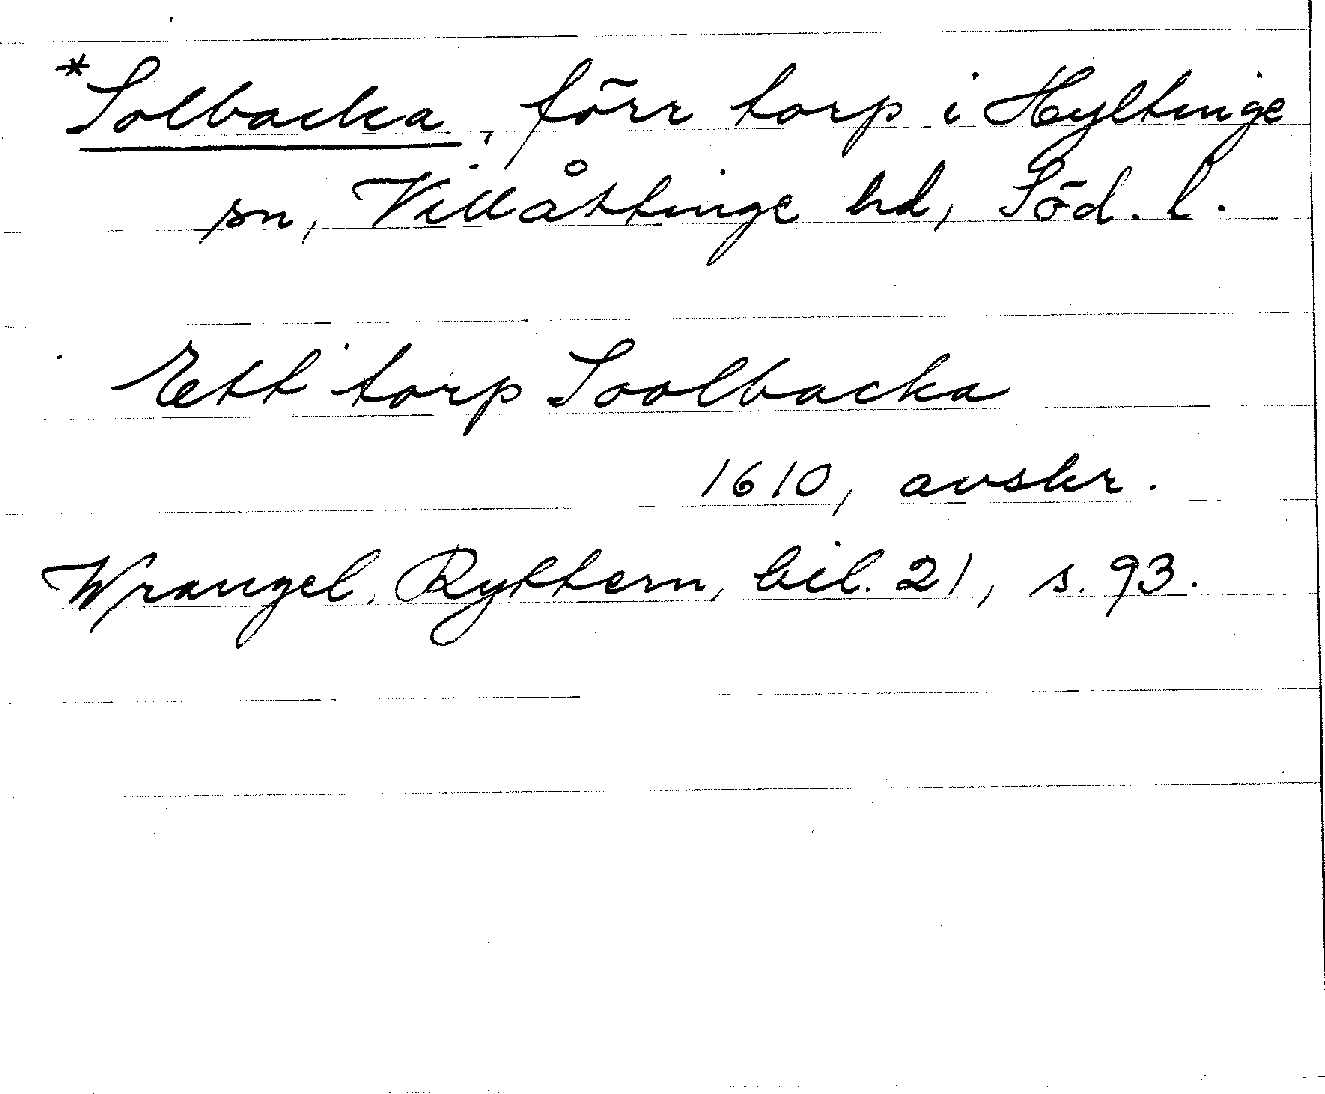 *Solbacka, förr torp i Hyltinge
sn, Villåttinge hd, Söd. l.
Ett torp Soolbacka
1610, avskr.
Wrangel, Ryttern, bil. 21, s. 93.